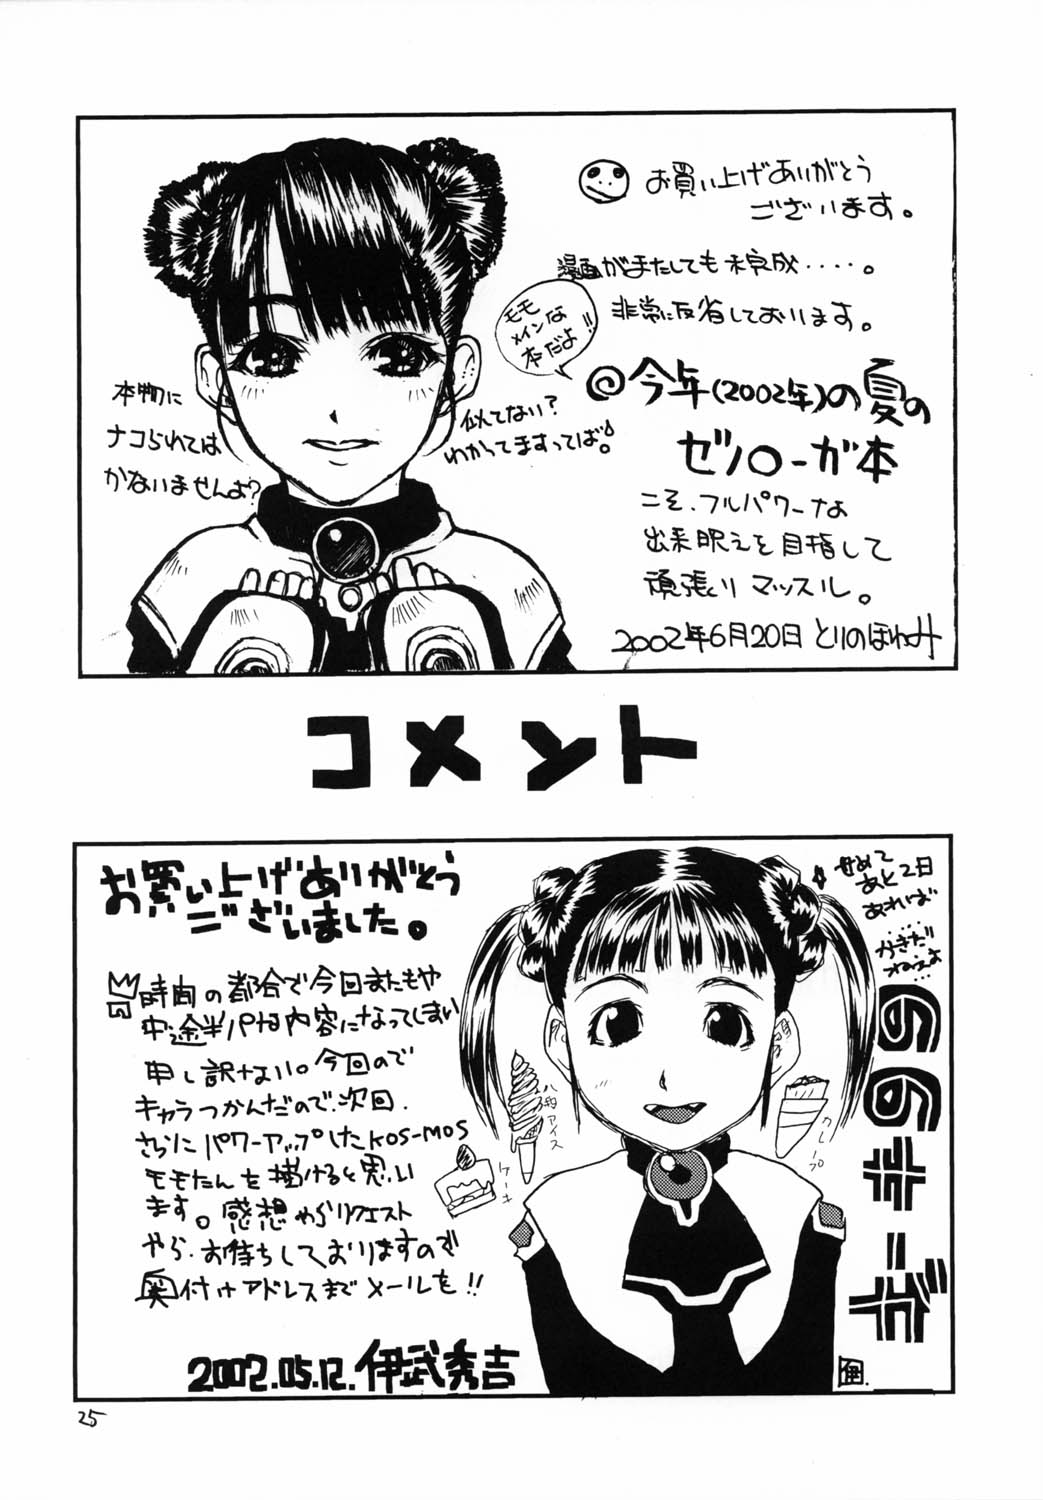 お買い上げありがとう
ございます。
漫画がまたしても未完成・・・・。
非常に反省しております。
モモ
メインな
本だよ!!
◎今年(2002年)の夏の
ゼノ○ーガ本
こそ、フルパワーな
出来映えを目指して
頑張りマッスル。
2002年6月20日 とりのほねみ
似てない?
わかってますってば!
本物に
ナコられては
かないませんよ?
コメント
お買い上げありがとう
ございました。
時間の都合で今回またもや
中途半パな内容になってしまい
申し訳ない。今回ので
キャラつかんだので、次回、
さらにパワーアップしたKOS-MOS
モモたんを描けると思い
ます。感想やらリクエスト
やら、お待ちしておりますので
奥付けアドレスまでメールを!!
2002.05.12. 伊武秀吉
せめて
あと2日
あれば
……
かきだ
ねぇよ
…
アイス
ケーキ
クレープ
25